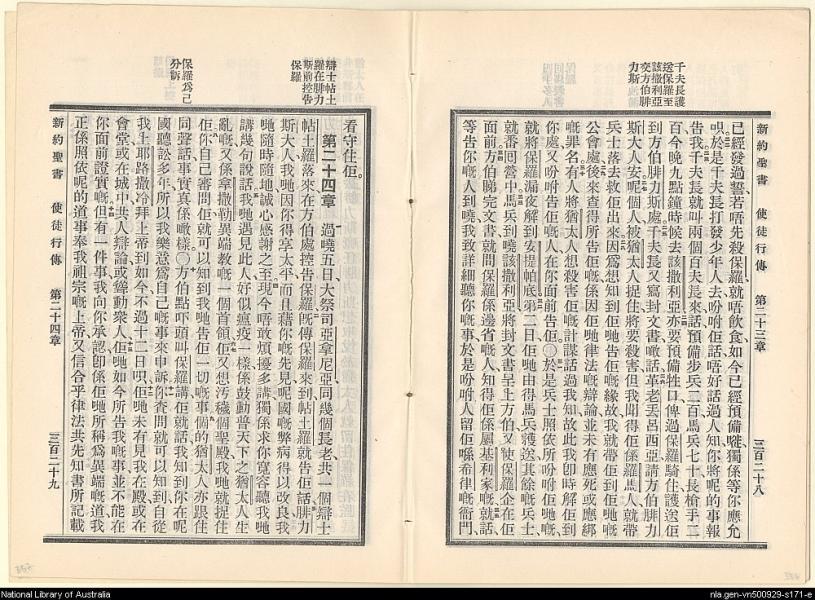 新約聖書 使徒行傳 第二十三章 三百二十八
千夫長護
送保羅至
該撒利亞
交方伯腓
力斯
已經發過誓若唔先殺保羅就唔飲食如今已經預備嘥獨係等你應允
呮於是千夫長打發少年人去吩咐佢話唔好話過人知你將呢的事報
告我千夫長就叫兩個百夫長來話預備步兵二百馬兵七十長槍手二
百今晚九點鐘時候去該撒利亞亦要預備牲口俾過保羅騎住護送佢
到方伯腓力斯處千夫長又寫封文書噉話革老丟呂西亞請方伯腓力
斯大人安呢個人被猶太人捉住將要殺害但我聞得佢係羅馬人就帶
兵士落去救佢出來因爲想知到佢哋告佢嘅緣故我就帶佢到佢哋嘅
公會處後來查得所告佢嘅係因佢哋律法嘅辯論並未有應死或應綁
嘅罪名有人將猶太人想殺害佢嘅計謀話過我知故此我卽時解佢到
你處又吩咐告佢嘅人在你面前告佢〇於是兵士照依所吩咐佢哋嘅
就將保羅漏夜解到安提帕底第二日佢哋由得馬兵護送其餘嘅兵士
就番囘營中馬兵到曉該撒利亞將封文書呈上方伯又使保羅企在佢
面前方伯睇完文書就問保羅係邊省嘅人知得佢係屬基利家嘅就話
等告你嘅人到曉我致詳細聽你嘅事於是吩咐人留佢喺希律嘅衙門
看守住佢
第二十四章
辯士帖土
羅在腓力
斯前控告
保羅
過曉五日大祭司亞拿尼亞同幾個長老共一個辯士
帖土羅落來在方伯處控告保羅旣傳保羅來到帖土羅就告佢話腓力
斯大人我哋因你得享太平而且藉你嘅先見呢國嘅弊病得以改良我
哋隨時隨地誠心感謝之至現今唔敢煩擾多講獨係求你寬容聽我哋
講幾句說話我哋遇見此人好似瘟疫一樣係鼓動普天下之猶太人生
亂嘅又係拿撒勒異端教嘅一個首領佢又想汚穢個聖殿我哋就捉住
佢你自己審問佢就可以知到我哋告佢一切嘅事個的猶太人亦跟住
保羅爲己
分訴
同聲話事實眞係噉樣〇方伯點吓頭叫保羅講佢就話我知到你在呢
國聽訟多年所以我樂意爲自己嘅事來申訴你查問就可以知到自從
我上耶路撒冷拜上帝到如今不過十二日呮佢哋未有見我在殿或在
會堂或在城中共人辯論或聳動衆人佢哋如今所告我嘅事並不能在
你面前證實嘅但有一件事我向你承認卽係佢哋所稱爲異端嘅道我
正係照依呢的道事奉我祖宗嘅上帝又信合乎律法共先知書所記載
新約聖書 使徒行傳 第二十四章 三百二十九
National Library of Australia
nla.gen-vn500929-s171-e